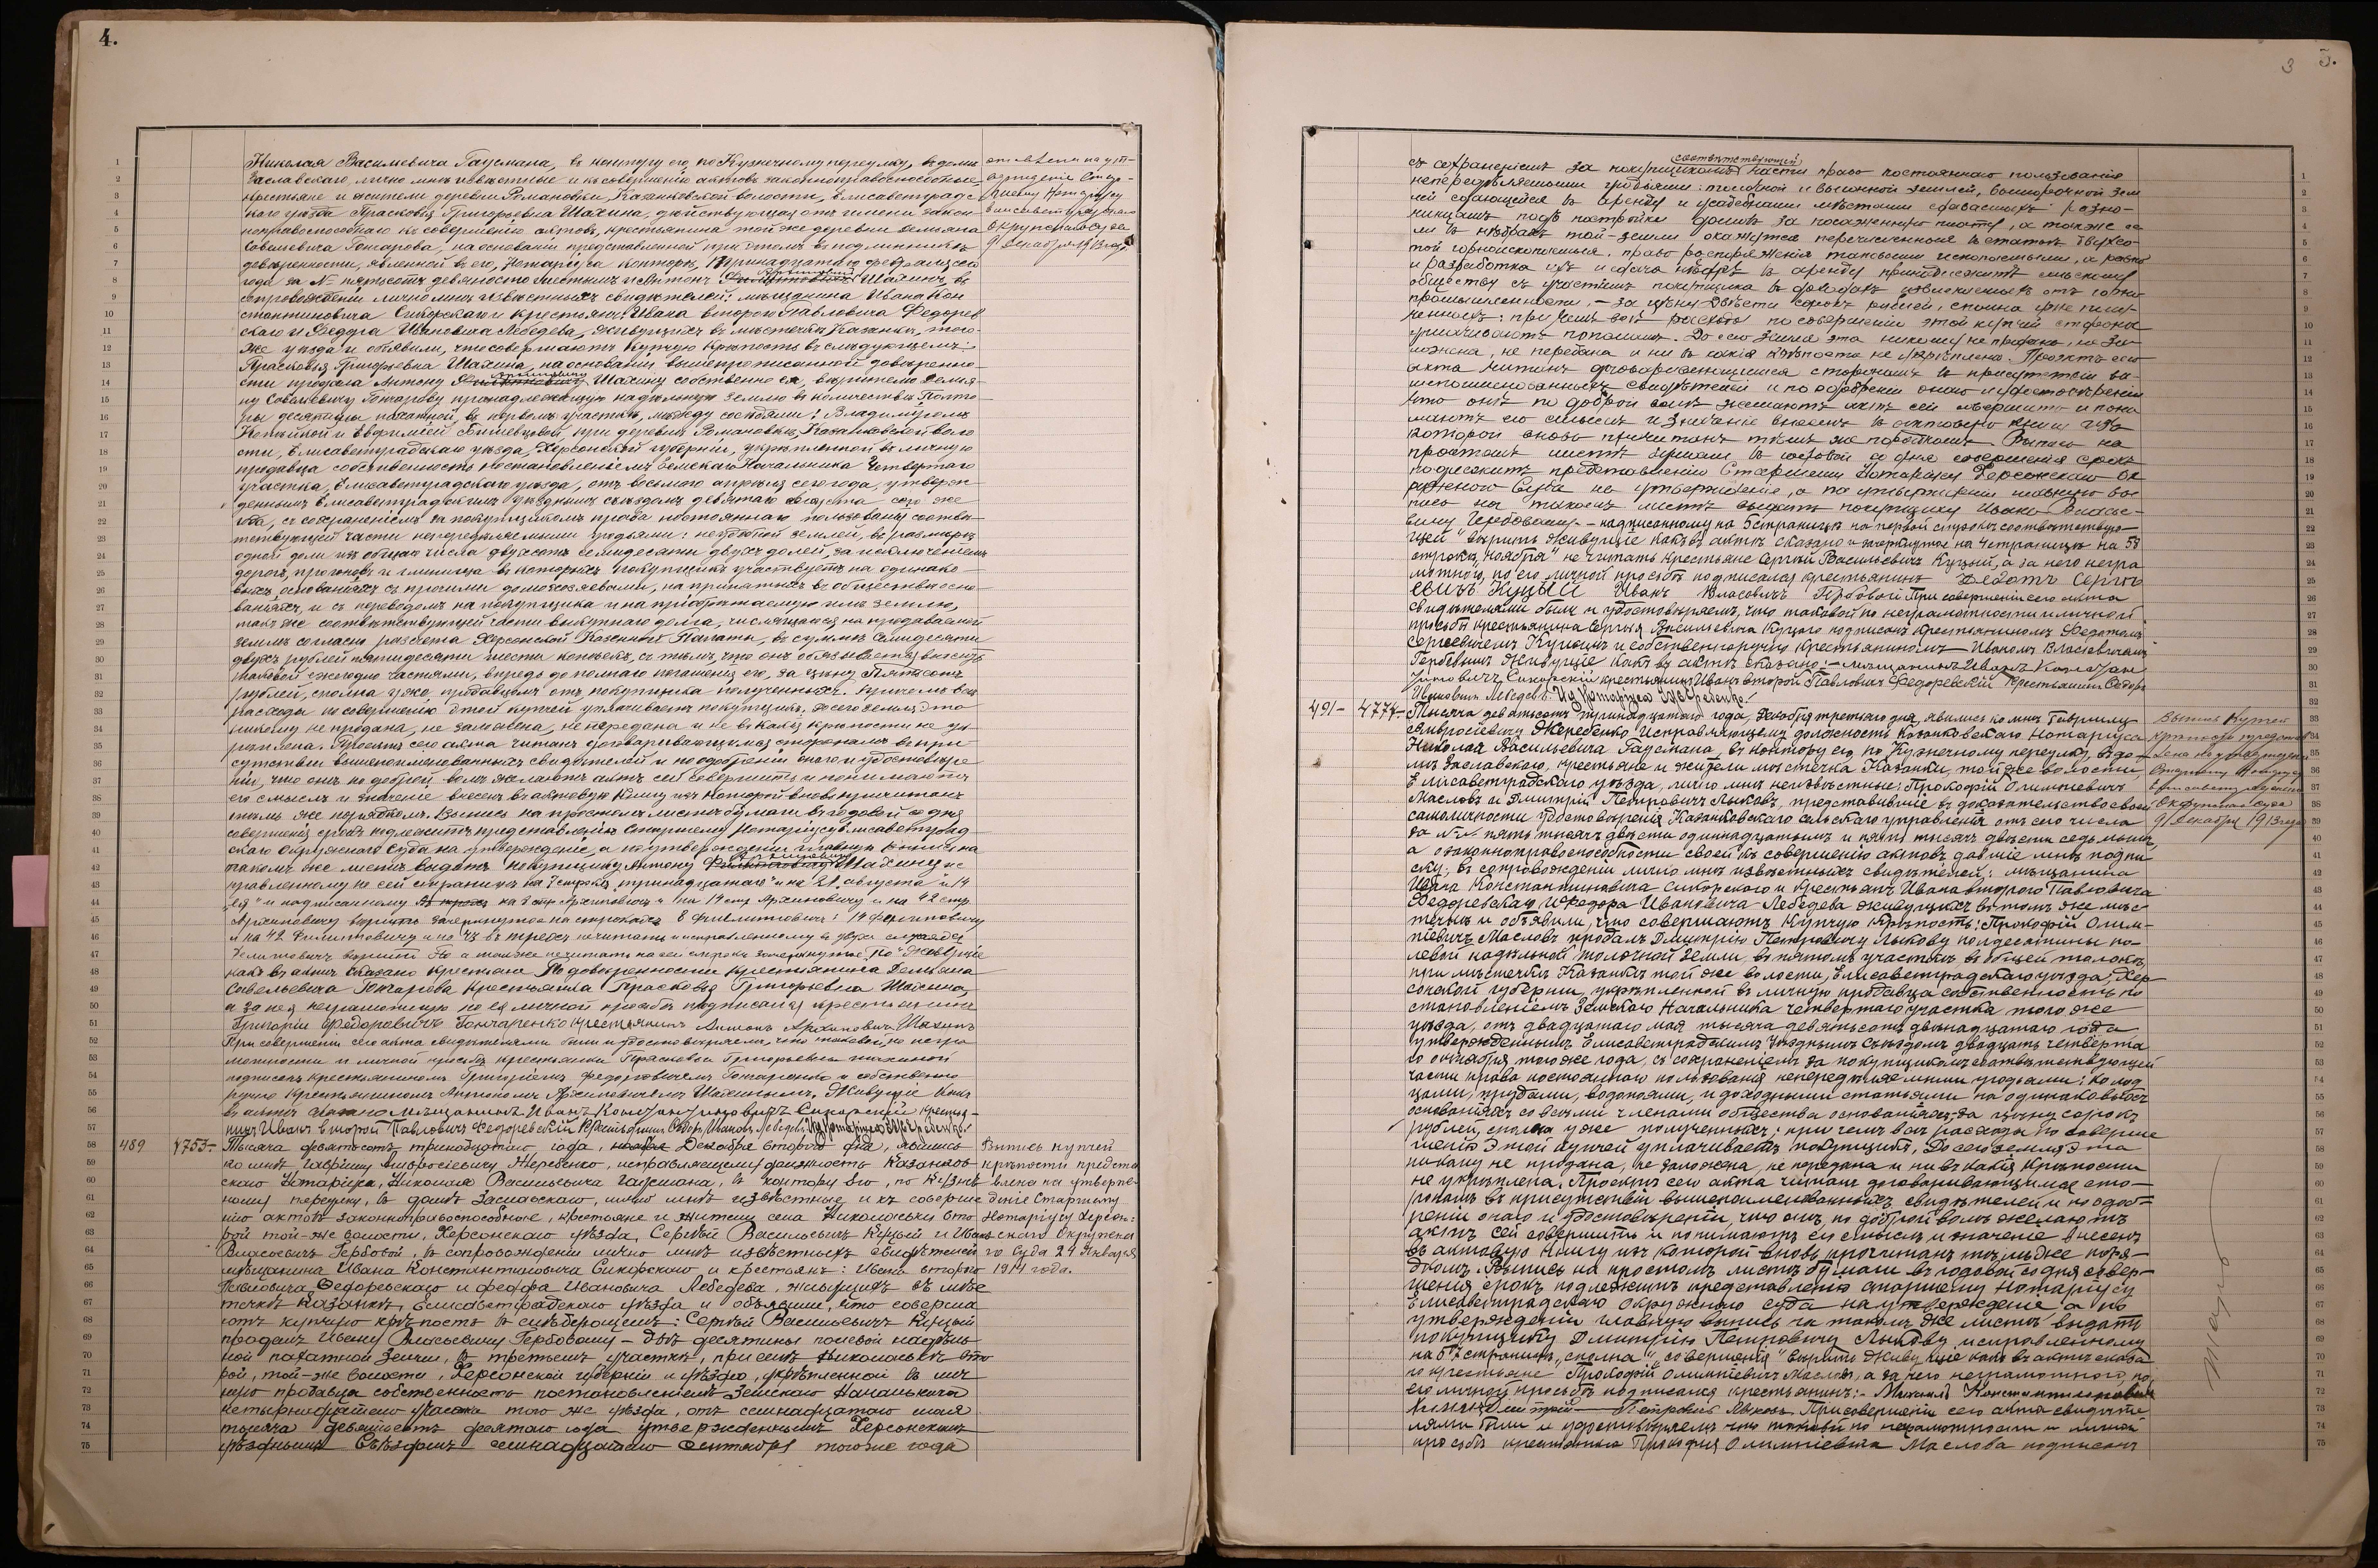 4.
Николая Васильевича Гаусмана, въ контору его, по Кузнечному переулку, въ домѣ
Заславскаго, лично мнѣ извѣстные и къ совершенію актовъ законноправоспособные,
крестьяне и жители деревни Романовки, Казанковской волости, Елисаветградс
каго уѣзда Прасковья Григорьевна Шахина, дѣйствующая отъ имени закон
ноправоспособнаго къ совершенію актовъ, крестьянина той же деревни Демьяна
Савельевича Гончарова, на основаніи представленной при этомъ въ подлинникѣ
довѣренности, явленной въ его, Нотаріуса конторѣ,
года за № пятьсотъ девяносто и Антонъ Шахинъ, въ
сопровожденіи лично мнѣ извѣстныхъ свидѣтелей: мѣщанина Ивана Кон
стантиновича Сикорскаго и крестьянъ Ивана второго Павловича Федорев
скаго и Федора Ивановича Лебедева, живущихъ въ мѣстечкѣ Казанкѣ, того-
же уѣзда и объявили, что совершаютъ купчую крѣпость въ слѣдующемъ:
Прасковья Григорьевна Шахина, на основаніи вышепрописанной довѣренно
сти продала Антону Шахину собственно ея, вѣрителю Демья-
ну Савельевичу Гончарову принадлежащую надѣльную землю въ количествѣ полто
ры десятины пахатной, въ первомъ участкѣ, между сосѣдями: Владиміромъ
и Евфиміей при деревнѣ Романовкѣ, Казанковской воло
сти, Елисаветградскаго уѣзда, Херсонской губерніи, укрѣпленной въ личную
продавца собственность постановленіемъ Земскаго Начальника Четвертаго
участка, Елисаветградскаго уѣзда, отъ восьмого апрѣля сего года, утверж
деннымъ Елисаветградскимъ уѣзднымъ съѣздомъ девятаго августа сего же
года, съ сохраненіемъ за покупщикомъ права постояннаго пользованія соотвѣ-
тствующей части непередѣляемыми угодьями: неудобной землей, въ размѣрѣ
одной доли изъ общаго числа двухсотъ семидесяти двухъ долей, за исключеніемъ
дорогъ, прогоновъ и глинища въ которыхъ покупщикъ участвуетъ на одинако-
выхъ основаніяхъ съ прочими домохозяевами, на принятыхъ въ обществѣ осно
ваніяхъ, и съ переводомъ на покупщика и на пріобрѣтаемую имъ землю,
такъ же соотвѣтствующей части выкупнаго долга, числящагося на продаваемой
землѣ согласно разсчета Херсонской Казенной Палаты, въ суммѣ семидесяти
двухъ рублей пятидесяти шести копѣекъ, съ тѣмъ, что онъ обязывается вносить
таковой ежегодно частями, впредь до полнаго погашенія его, за цѣну пятьсотъ
рублей, сполна уже продавцомъ отъ покупщика полученныхъ. причемъ всѣ
расходы по совершенію этой купчей уплачиваетъ покупщикъ. до сего земля эта
никому не продана, не заложена, не передана и не въ какія крѣпости не ук
рѣплена. Проектъ сего акта читанъ договаривающимся сторонамъ въ при
сутствіи вышепоименованныхъ свидѣтелей и по одобреніи онаго и удостовѣре
ніи, что они по доброй волѣ желаютъ актъ сей совершить и понимаютъ
его смыслъ и значеніе внесенъ въ актовую книгу изъ которой вновь прочитанъ
тѣмъ же порядкомъ. Выпись на простомъ листѣ бумаги въ годовой со дня
совершенія срокъ подлежитъ представленію Старшему Нотаріусу Елисаветград
скаго Окружнаго Суда на утвержденіе, а по утвержденіи главную выпись на
такомъ же листѣ выдать покупщику Антону Шахину ис
правленному на сей страницѣ на 7 строкѣ „тринадцатаго" и на 21 „августа" и 14
„ея" и надписанному на 8 стр Архиповичъ и на 14 стр Архиповичу и на 42 стр
Архиповичу вѣрить зачеркнутое на строкахъ 8 Филиповичъ: 14 Филиповичу
и на 42 Филиповичу и на 43
какъ въ актѣ сказано крестьяне По довѣренности крестьянина Демьяна
Савельевича Гончарова крестьянка Прасковья Григорьевна Шахина,
а за нея неграмотную по ея личной просьбѣ подписался крестьянинъ
Григорій Федоровичъ Гончаренко крестьянинъ Антонъ Архиповичъ Шахинъ
При совершеніи сего акта свидѣтелями были и удостовѣряемъ, что таковой, по негра
мотности и личной просьбѣ крестьянки Прасковьи Григорьевны Шахиной
подписанъ крестьяниномъ Григоріемъ Федоровичемъ Гончаренко и собственно
ручно крестьяниномъ Антономъ Архиповичемъ Шахинымъ. Живущіе какъ
въ актѣ сказано мѣщанинъ Иванъ Константиновичъ Сикорскій крестья-
нинъ Иванъ второй Павловичъ Федоревскій Крестьянинъ Федоръ Ивановъ Лебедевъ. И.д. Нотаріуса
выпись на ут-
вержденіе Стар-
шему Нотаріусу
Елисаветградскаго
Окружнаго Суда
9 Декабря 1913 года
489
4753-
Тысяча девятьсотъ тринадцатаго года, Декабря второго дня, явились
ко мнѣ Гавріилу Амвросіевичу Жеребенко, исправляющему должность Казанков-
скаго Нотаріуса, Николая Васильевича Гаусмана, въ контору его, по Кузнеч
ному переулку, въ домѣ Заславскаго, лично мнѣ извѣстные и къ соверше
нію актовъ законноправоспособные, крестьяне и жители села Николаевки вто
рой той-же волости, Херсонскаго уѣзда, Сергѣй Васильевичъ Куцый и Иванъ
Власовичъ Гербовой, въ сопровожденіи лично мнѣ извѣстныхъ свидѣтелей
мѣщанина Ивана Константиновича Сикорскаго и крестьянъ: Ивана второго
Павловича Федоревскаго и Федора Ивановича Лебедева, живущихъ въ мѣс
течкѣ Казанкѣ, Елисаветградскаго уѣзда и объявили, что соверша
ютъ купчую крѣпость въ слѣдующемъ: Сергѣй Васильевичъ Куцый
продалъ Ивану Власьевичу Гербовому - двѣ десятины полевой надѣль
ной пахатной земли, въ третьемъ участкѣ, при селѣ Николаевкѣ вто
рой, той-же волости, Херсонской губерніи и уѣзда, укрѣпленной въ лич
ную продавца собственность постановленіемъ Земскаго Начальника
четырнадцатаго участка того же уѣзда, отъ семнадцатаго мая
тысяча девятьсотъ десятаго года утвержденнымъ Херсонскимъ
уѣзднымъ Съѣздомъ семнадцатаго сентября того же года
Выпись купчей
крѣпости предста
влена на утверж-
деніе Старшему
Нотаріусу Херсон-
скаго Окружна
го Суда 24 Января
1914 года.
3
5.
соотвѣтствующей
съ сохраненіемъ за покупщикомъ части право постояннаго пользованія
непередѣляемыми угодьями: толочной и выгонной землей, выморочной зем
лей сдающейся въ аренду и усадебными мѣстами сдаваемыхъ разно-
чинцамъ подъ постройки домовъ за посаженную плату, а также ес
ли въ нѣдрахъ той-земли окажутся
той горноископаемыя, право распоряженія таковыми ископаемыми, а равно
и разработка ихъ и сдача нѣдръ въ аренду принадлежитъ сельскому
обществу съ участіемъ покупщика въ доходахъ извлекаемыхъ отъ горно
промышленности, - за цѣну двѣсти сорокъ рублей, сполна уже полу-
ченныхъ: при чемъ всѣ расходы по совершенію этой купчей стороны
уплачиваютъ пополамъ. До сего земля эта никому не продана, не за-
ложена, не передана и ни въ какія крѣпости не укрѣплена. Проектъ сего
акта читанъ договаривающимся сторонамъ въ присутствіи вы-
шепоименованныхъ свидѣтелей и по одобреніи онаго и удостовѣреніи
что они по доброй волѣ желаютъ актъ сей совершить и пони
маютъ его смыслъ и значеніе внесенъ въ актовую книгу изъ
которой вновь прочитанъ тѣмъ же порядкомъ. Выпись на
простомъ листѣ бумаги въ годовой со дня совершенія срокъ
подлежитъ представленію Старшему Нотаріусу Херсонскаго Ок
ружнаго Суда на утвержденіе, а по утвержденіи главную вы
пись на такомъ листѣ выдать покупщику Ивану Власье-
вичу Гербовому.- надписанному на 5 страницѣ на первой строкѣ соотвѣтствую-
щей" вѣрить Живущіе какъ въ актѣ сказано и зачеркнутое на 4 страницѣ на 58
строкѣ „ноября" не читать крестьяне Сергѣй Васильевичъ Куцый, а за него негра
мотнаго, по его личной просьбѣ подписался крестьянинъ Федотъ Сергѣ
евичъ Куцый Иванъ Власовичъ Гербовой При совершеніи сего акта
свидѣтелями были и удостовѣряемъ, что таковой по неграмотности и личной
просьбѣ крестьянина Сергѣя Васильевича Куцаго подписанъ крестьяниномъ Федотомъ
Сергѣевичемъ Куцымъ и собственноручно крестьяниномъ Иваномъ Власьевичемъ
Гербовымъ Живущіе какъ въ актѣ сказано: мѣщанинъ Иванъ Констан
тиновичъ Сикорскій крестьянинъ Иванъ второй Павловичъ Федоревскій Крестьянинъ Федоръ
Ивановичъ Лебедевъ. И.д. Нотаріуса
491-
4774-
Тысяча девятьсотъ тринадцатаго года, Декабря третьяго дня, явились ко мнѣ Гавріилу
Амвросіевичу Жеребенко Исправляющему должность Казанковскаго Нотаріуса
Николая Васильевича Гаусмана, въ контору его, по Кузнечному переулку, въ до-
мѣ Заславскаго, крестьяне и жители мѣстечка Казанки, той же волости
Елисаветградскаго уѣзда, лично мнѣ неизвѣстные: Прокофій Олимпіевичъ
Масловъ и Дмитрій Петровичъ Лыковъ, представившіе въ доказательство своей
самоличности удостовѣренія Казанковскаго сельскаго управленія отъ сего числа
за №№ пять тысячъ двѣсти одиннадцатымъ и пять тысячъ двѣсти седьмымъ,
а о законноправоспособности своей къ совершенію актовъ давшіе мнѣ подпи
ску, въ сопровожденіи лично мнѣ извѣстныхъ свидѣтелей: мѣщанина
Ивана Константиновича Сикорскаго и крестьянъ Ивана второго Павловича
Федоревскаго и Федора Ивановича Лебедева живущихъ въ томъ же мѣс
течкѣ и объявили, что совершаютъ купчую крѣпость: Прокофій Олим-
піевичъ Масловъ продалъ Дмитрію Петровичу Лыкову полдесятины по-
левой надѣльной толочной земли, въ пятомъ участкѣ въ общей толокѣ,
при мѣстечкѣ Казанкѣ той же волости, Елисаветградскаго уѣзда, Хер-
сонской губерніи, укрѣпленной въ личную продавца собственность по
становленіемъ Земскаго Начальника четвертаго участка того же
уѣзда, отъ двадцатаго мая тысяча девятьсотъ двѣнадцатаго года
утвержденнымъ Елисаветградскимъ Уѣзднымъ Съѣздомъ двадцать четверта
го октября того же года, съ сохраненіемъ за покупщикомъ соотвѣтствующей
части права постояннаго пользованія непередѣляемыми угодьями: колод
цами, прудами, водопоями, и доходными статьями на одинаковыхъ
основаніяхъ со всѣми членами общества основаніяхъ, за цѣну сорокъ
рублей, сполна уже полученныхъ; при чемъ всѣ расходы по соверше
нію этой купчей уплачиваетъ покупщикъ. До сего земля эта
никому не продана, не заложена, не передана и ни въ какія крѣпости
не укрѣплена. Проектъ сего акта читанъ договаривающимся сто-
ронамъ въ присутствіи вышепоименованныхъ свидѣтелей и по одоб-
реніи онаго и удостовѣреніи, что они, по доброй волѣ желаютъ
актъ сей совершить и понимаютъ его смыслъ и значеніе внесенъ
въ актовую книгу изъ которой вновь прочитанъ тѣмъ же поря-
дкомъ. Выпись на простомъ листѣ бумаги въ годовой со дня совер-
шенія срокъ подлежитъ представленію старшему Нотаріусу
Елисаветградскаго Окружнаго Суда на утвержденіе, а по
утвержденіи главную выпись на такомъ же листѣ выдать
покупщику Дмитрію Петровичу Лыкову исправленному
на 57 страницѣ „сполна" „совершенія" вѣрить Живущіе какъ въ актѣ сказа
но крестьяне Прокофій Олимпіевичъ Масловъ, а за него неграмотнаго, по
его личной просьбѣ подписался крестьянинъ:- Михаилъ Константиновичъ
Дмитрій Петровичъ Лыковъ. При совершеніи сего акта свидѣте
лями были и удостовѣряемъ что таковой по неграмотности и личной
просьбѣ крестьянина Прокофія Олимпіевича Маслова подписанъ
Выпись Купчей
крѣпости представ
лена на утвержденіе
Старшему Нотаріусу
Елисаветградскаго
Окружнаго Суда
9 Декабря 1913 года